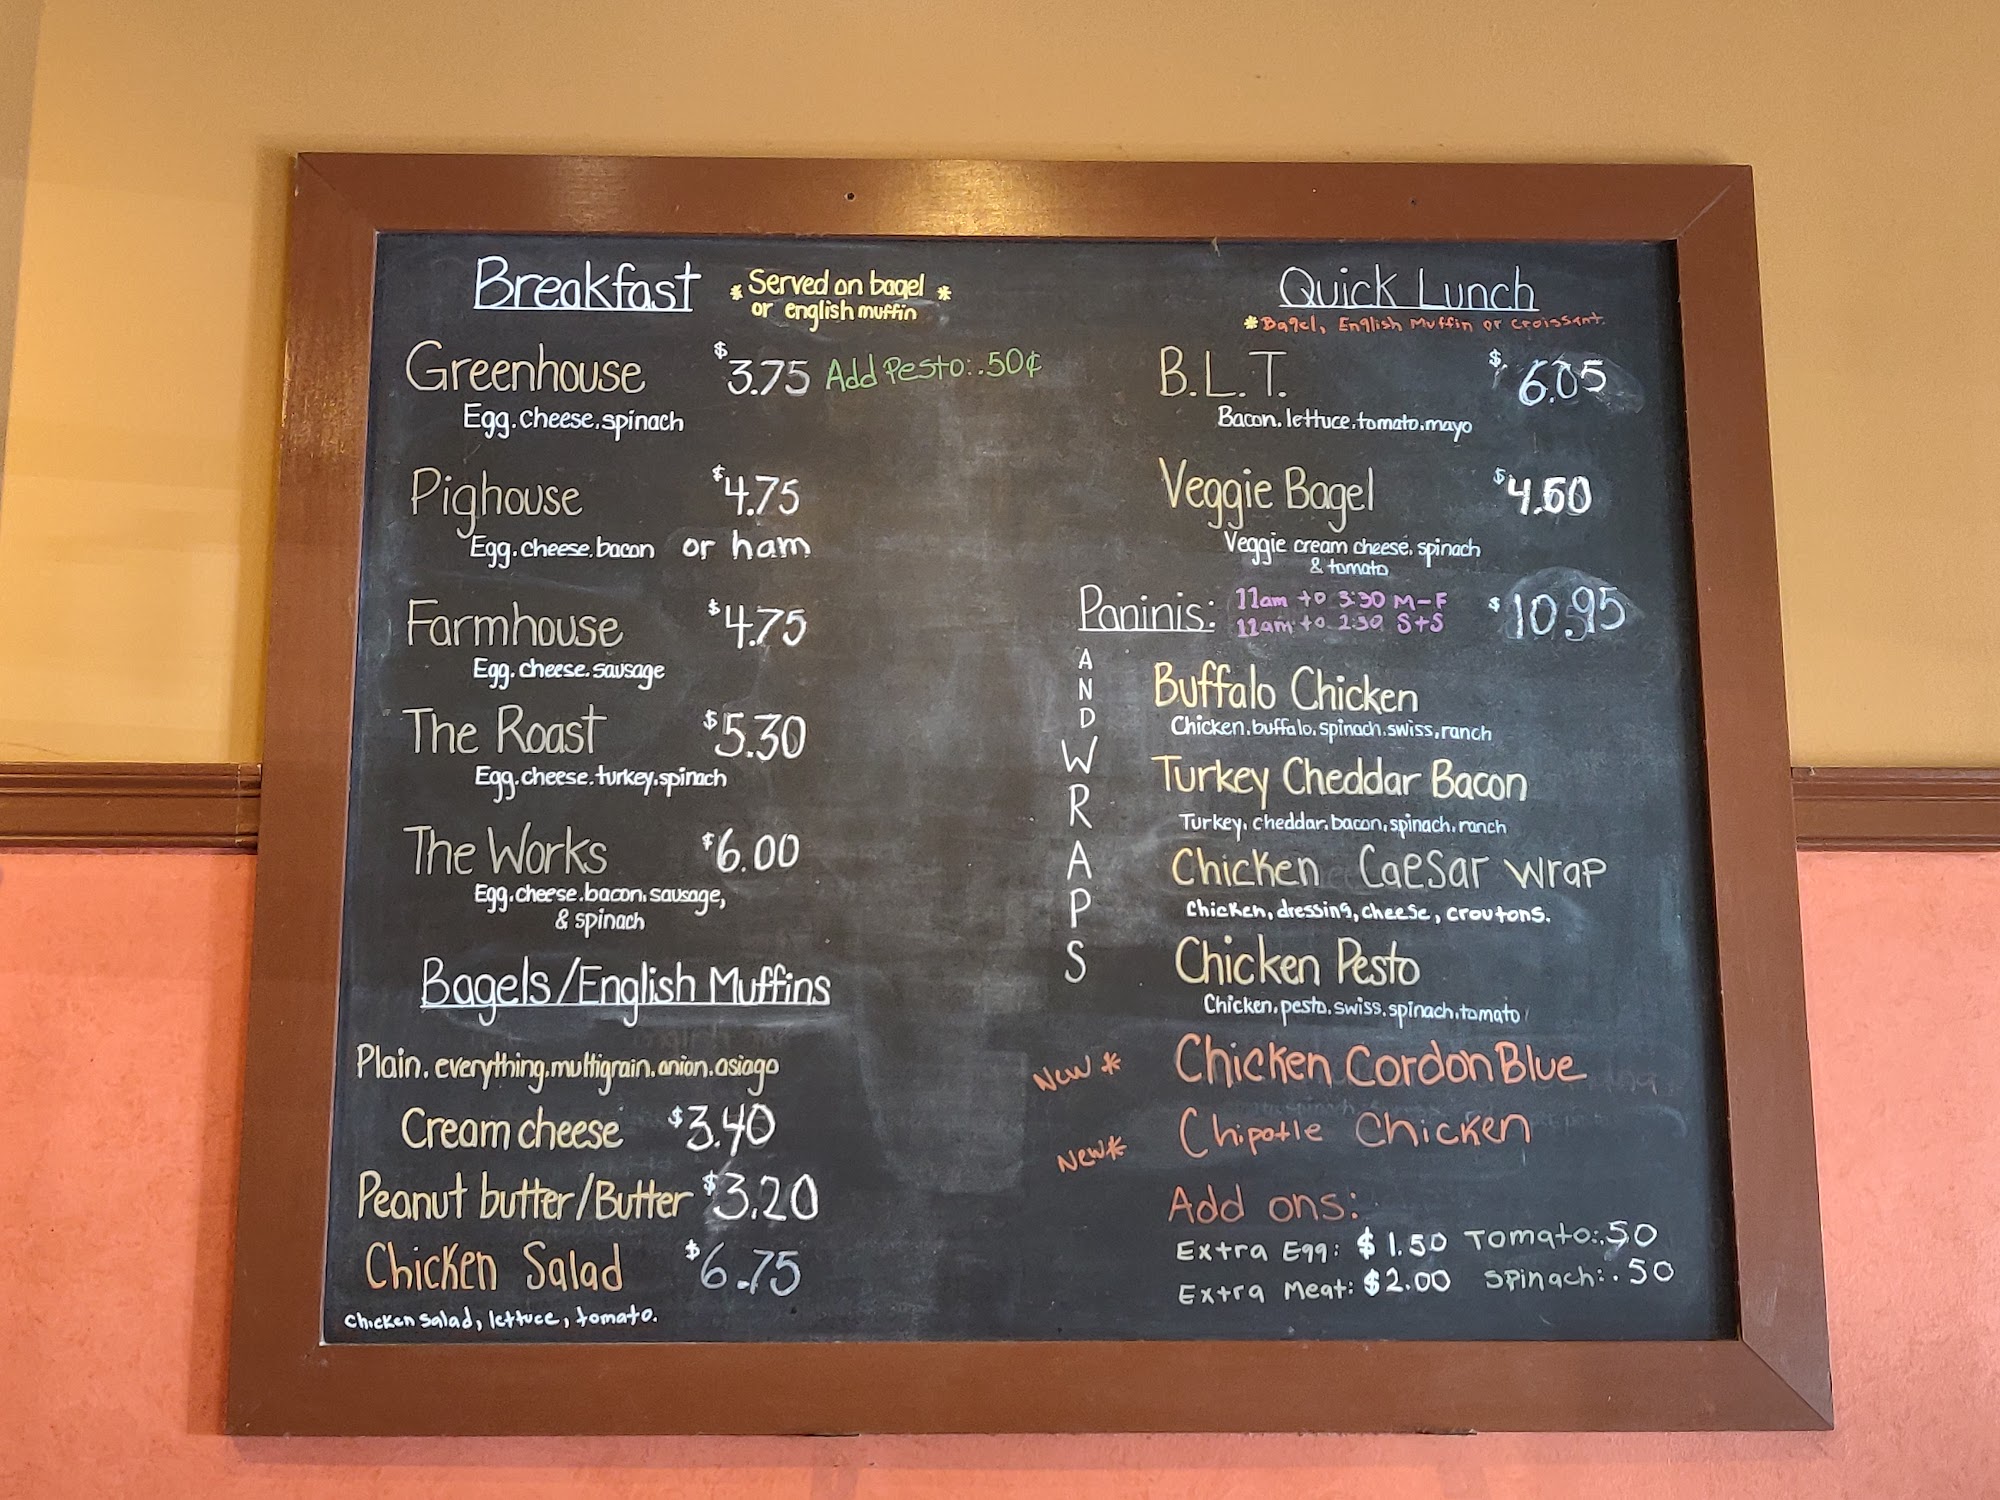 Breakfast
* Served on bagel *
or english muffin
Greenhouse $3.75 Add Pesto: .50¢
Egg. cheese. spinach
Pighouse $4.75
Egg. cheese. bacon or ham
Farmhouse $4.75
Egg. cheese. sausage
The Roast $5.30
Egg. cheese. turkey. spinach
The Works $6.00
Egg. cheese. bacon. sausage,
& spinach
Bagels/English Muffins
Plain. everything. multigrain. onion. asiago
Cream cheese $3.40
Peanut butter/Butter $3.20
Chicken Salad $6.75
Chicken salad, lettuce, tomato.
Quick Lunch
*Bagel, English Muffin or Croissant.
B.L.T. $6.05
Bacon. lettuce. tomato. mayo
Veggie Bagel
Veggie cream cheese. spinach
& tomato
Paninis: $10.95
11am to 3:30 M-F
11am to 2:30 S+S
AND WRAPS
Buffalo Chicken
Chicken. buffalo. spinach. swiss. ranch
Turkey Cheddar Bacon
Turkey. cheddar. bacon. spinach. ranch
Chicken Caesar Wrap
Chicken, dressing, cheese, croutons.
Chicken Pesto
Chicken. pesto. swiss. spinach. tomato
New* Chicken Cordon Blue
New* Chipotle Chicken
Add ons:
Extra Egg: $1.50 Tomato: .50
Extra Meat: $2.00 Spinach: .50